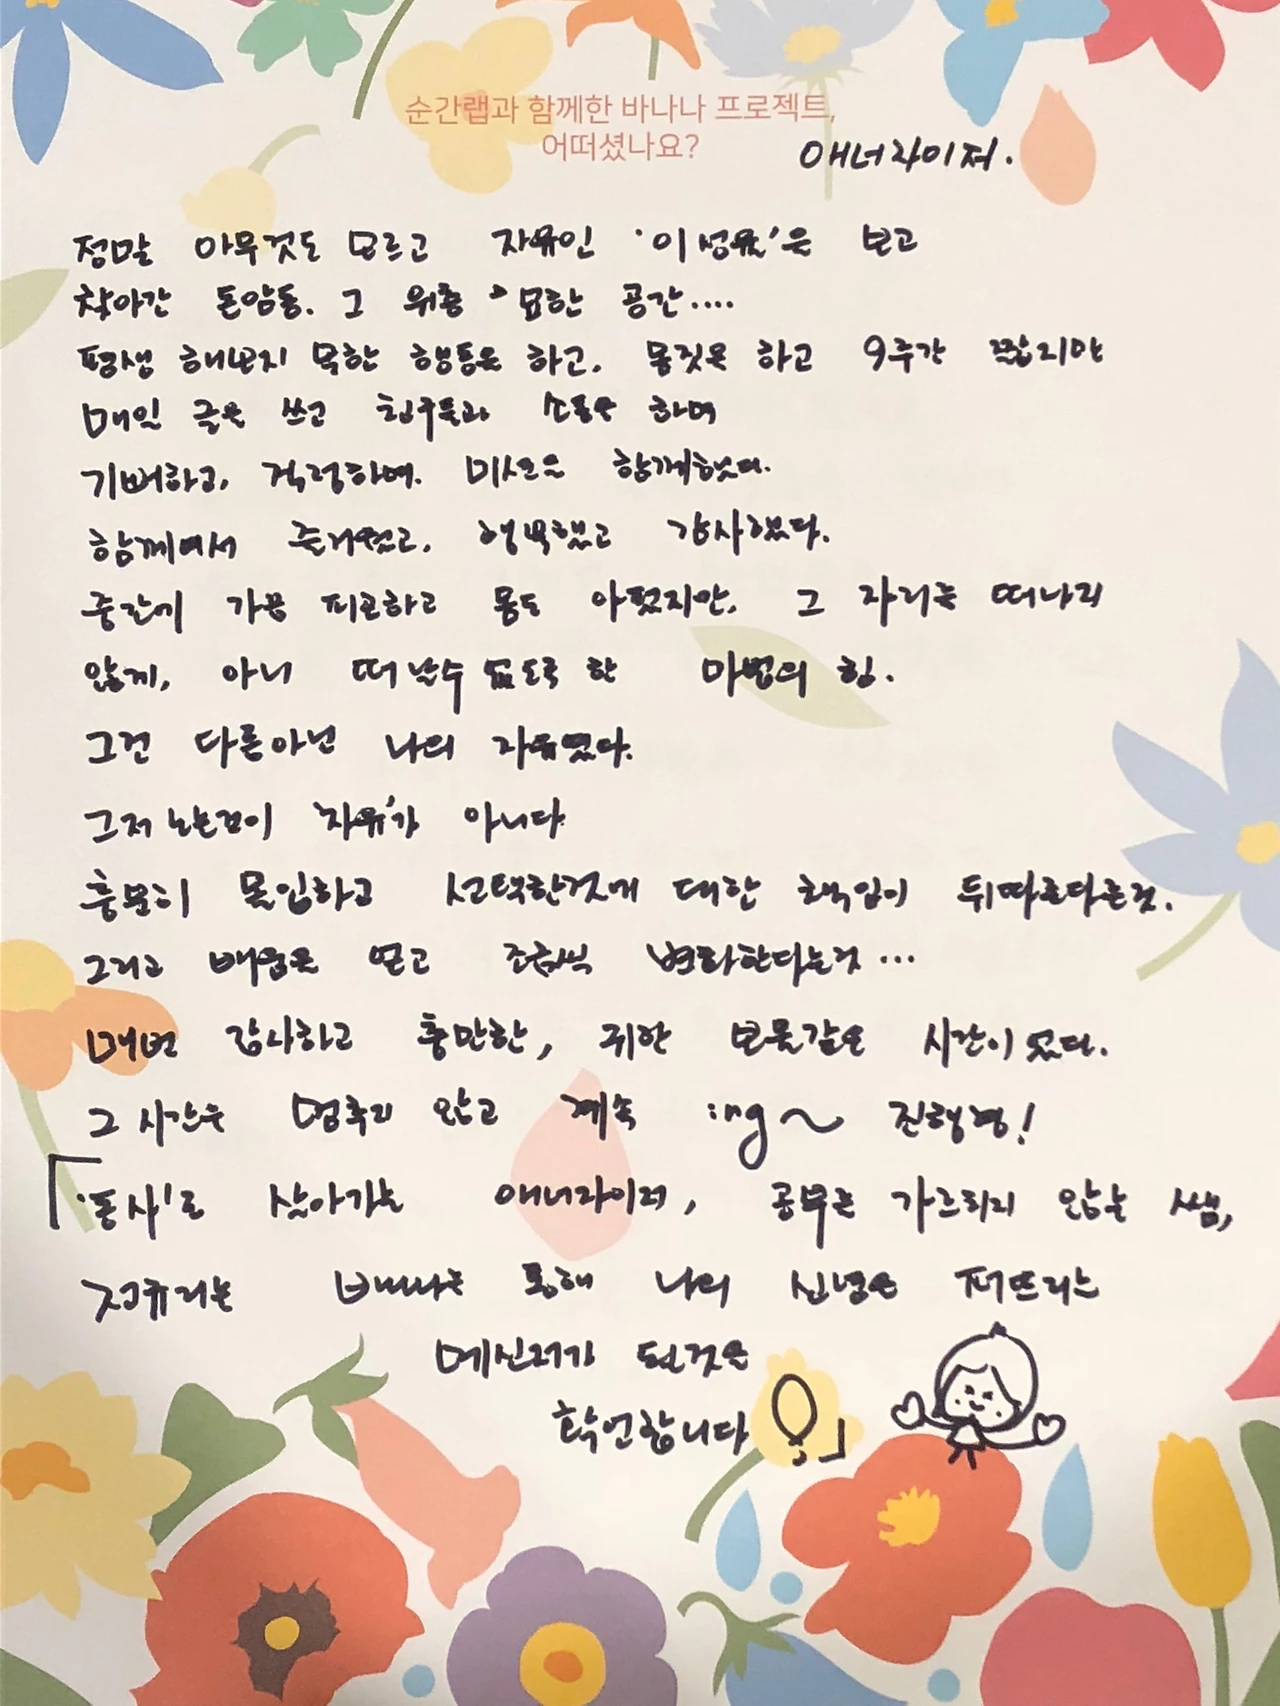 순간랩과 함께한 바나나 프로젝트,
어떠셨나요?
애너라이저.
정말 아무것도 모르고 자유인 '이성윤'을 보고
찾아간 돈암동. 그 위층 묘한 공간....
평생 해보지 못한 행동을 하고, 몸짓을 하고 9주간 짧지만
매일 글을 쓰고 친구들과 소통을 하며
기뻐하고, 걱정하며. 미션을 함께했다.
함께여서 즐거웠고, 행복했고 감사했다.
중간에 가끔 피곤하고 몸도 아팠지만, 그 자리를 떠나지
않게, 아니 떠날수 없도록 한 마법의 힘.
그건 다름아닌 나의 자유였다.
그저 노는것이 '자유'가 아니다.
충분히 몰입하고 선택한것에 대한 책임이 뒤따른다는것.
그리고 배움을 얻고 조금씩 변화한다는것...
매번 감사하고 충만한, 귀한 보물같은 시간이었다.
그 시간은 멈추지 않고 계속 ing~ 진행형!
「'돈사'로 살아가는 애너라이저, 공부를 가르치지 않는 쌤,
정규리는 바나나를 통해 나의 신념을 퍼뜨리는
메신저가 된것을
확언합니다!」